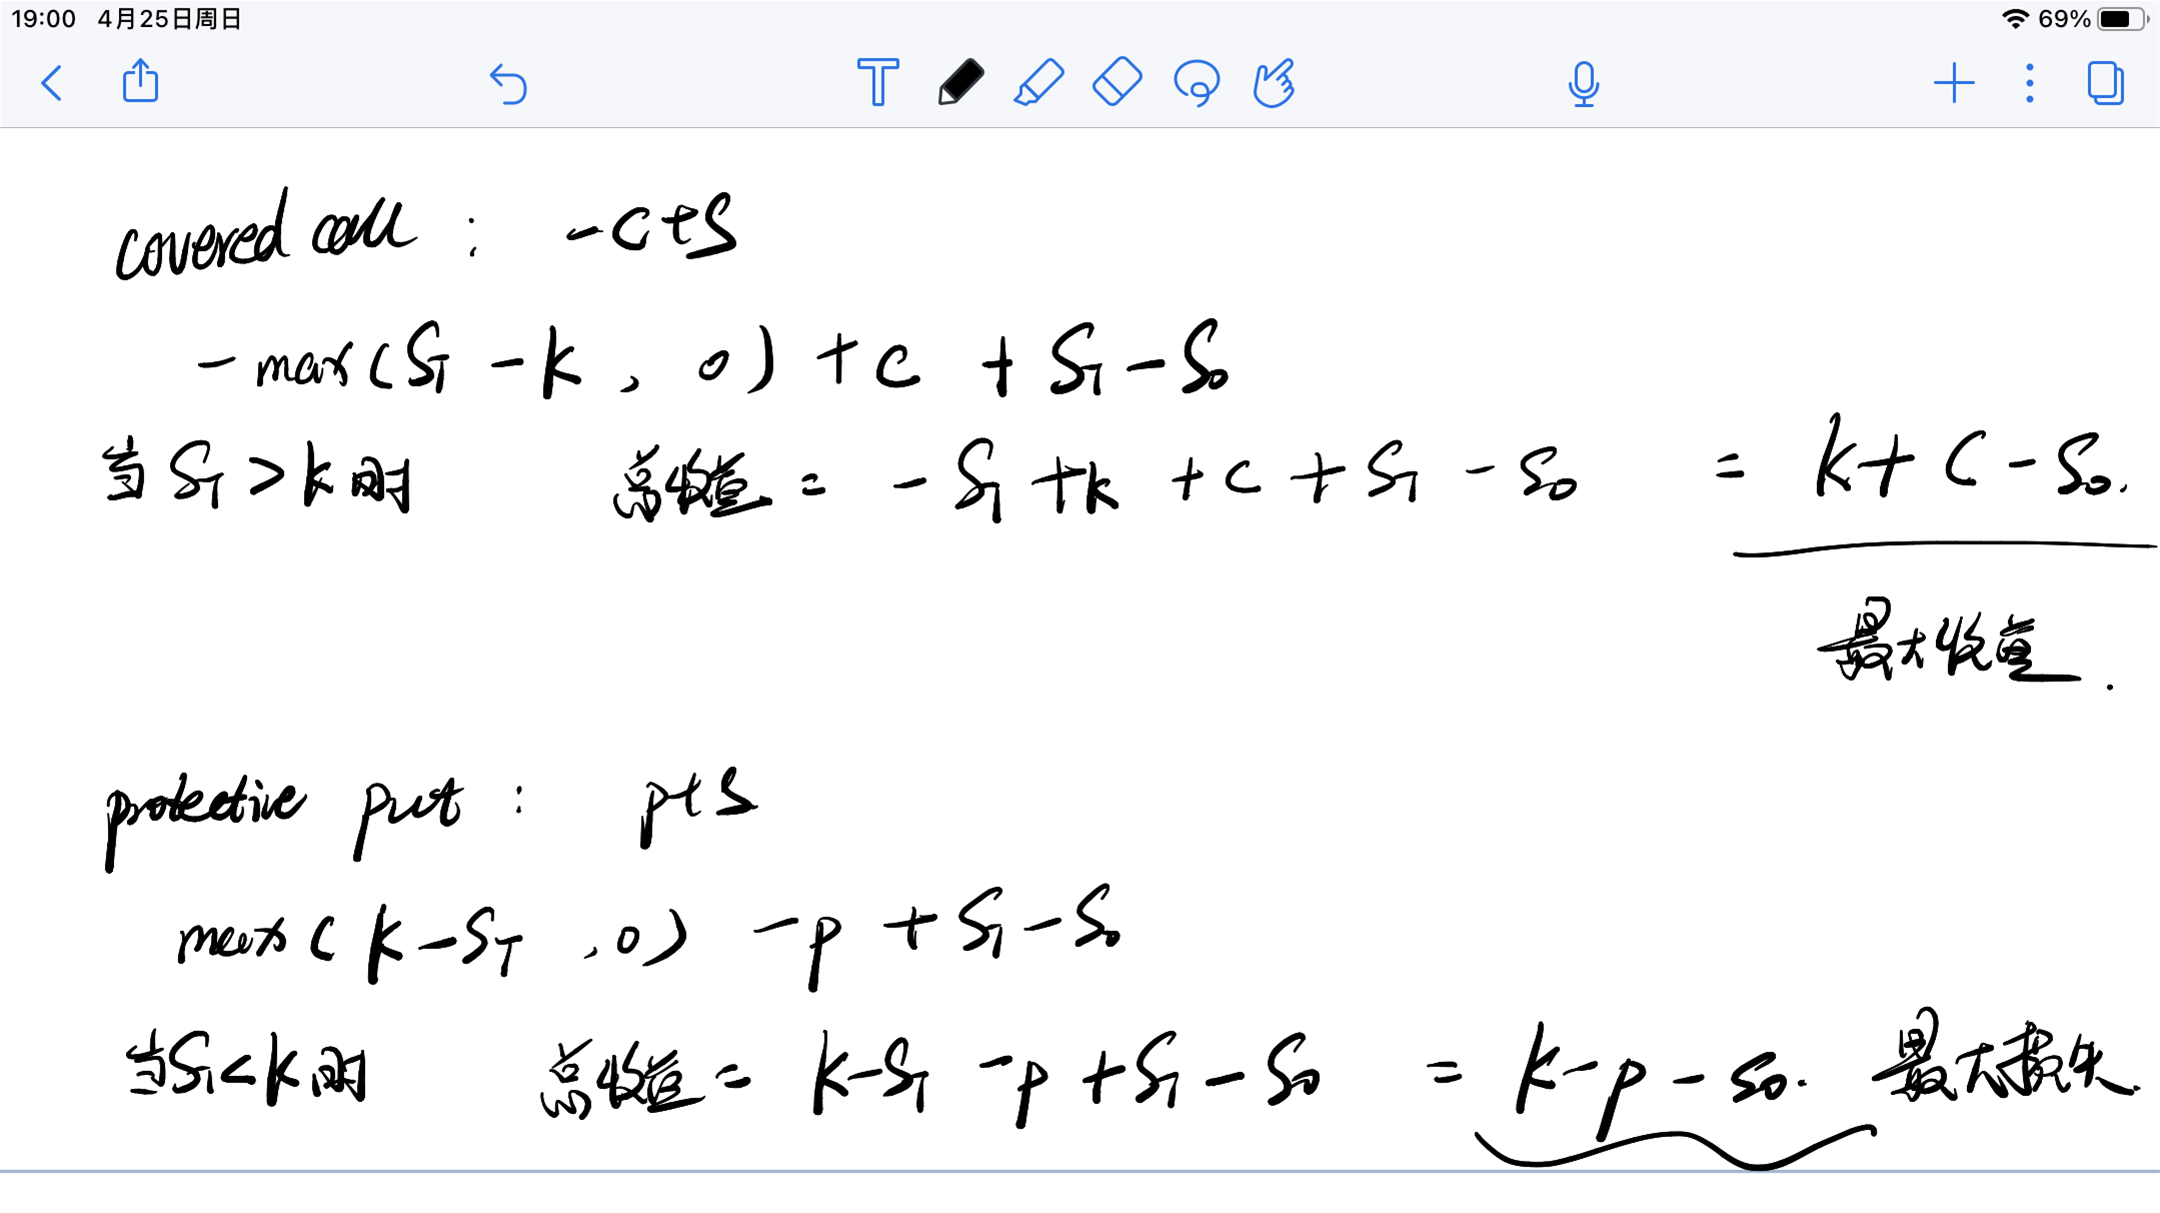 19:00 4月25日周日 69%
covered call : -C+S
-max(S_T - K , 0) + C + S_T - S_0
当 S_T > K 时 总收益 = - S_T + K + C + S_T - S_0 = K + C - S_0.
最大收益.
protective put : p+S
max(K-S_T ,0) -p + S_T - S_0
当S_T<K时 总收益 = K-S_T -p + S_T - S_0 = K-p - S_0. 最大损失.